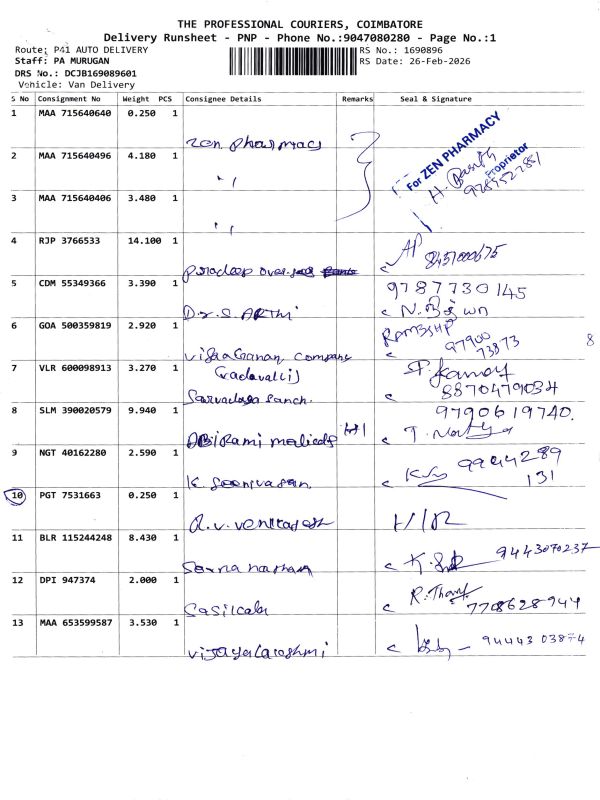 THE PROFESSIONAL COURIERS, COIMBATORE
Delivery Runsheet - PNP - Phone No.:9047080280 - Page No.:1
Route: P41 AUTO DELIVERY RS No.: 1690896
Staff: PA MURUGAN RS Date: 26-Feb-2026
DRS No.: DCJB169089601
Vehicle: Van Delivery
S No Consignment No Weight PCS Consignee Details Remarks Seal & Signature
1 MAA 715640640 0.250 1
Zen pharmacy
For ZEN PHARMACY
Proprietor
2 MAA 715640496 4.180 1
3 MAA 715640406 3.480 1
4 RJP 3766533 14.100 1
5 CDM 55349366 3.390 1
9787730145
Dr.S. ARThi
6 GOA 500359819 2.920 1
97900
73873
8
company
7 VLR 600098913 3.270 1
8870479034
8 SLM 390020579 9.940 1
9790619740.
9 NGT 40162280 2.590 1
9944289
131
K. Seenivasan
10 PGT 7531663 0.250 1
11 BLR 115244248 8.430 1
9443070237
12 DPI 947374 2.000 1
7708628944
Sasikala
13 MAA 653599587 3.530 1
94443 03874
vijayalakshmi